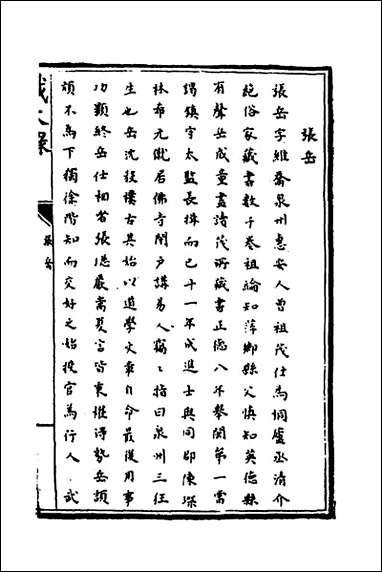 張岳
張岳字維喬泉州惠安人曾祖茂仕為桐廬丞清介
絕俗家藏書數千卷祖綸知萍鄉縣父慎知英德縣
有聲岳成童盡讀茂所藏書正德八年舉閩第一嘗
謁鎮守太監長揖而已十一年成進士與同郡陳琛
林希元僦居佛寺閉戶講易人竊〻指曰泉州三狂
生也岳沈毅樸古其始以道學大車自命最後用事
功顯終岳仕相省張璁嚴嵩夏言皆秉權得勢岳頡
頏不為下獨徐階知而交好之始授官為行人武
識大錄
張岳